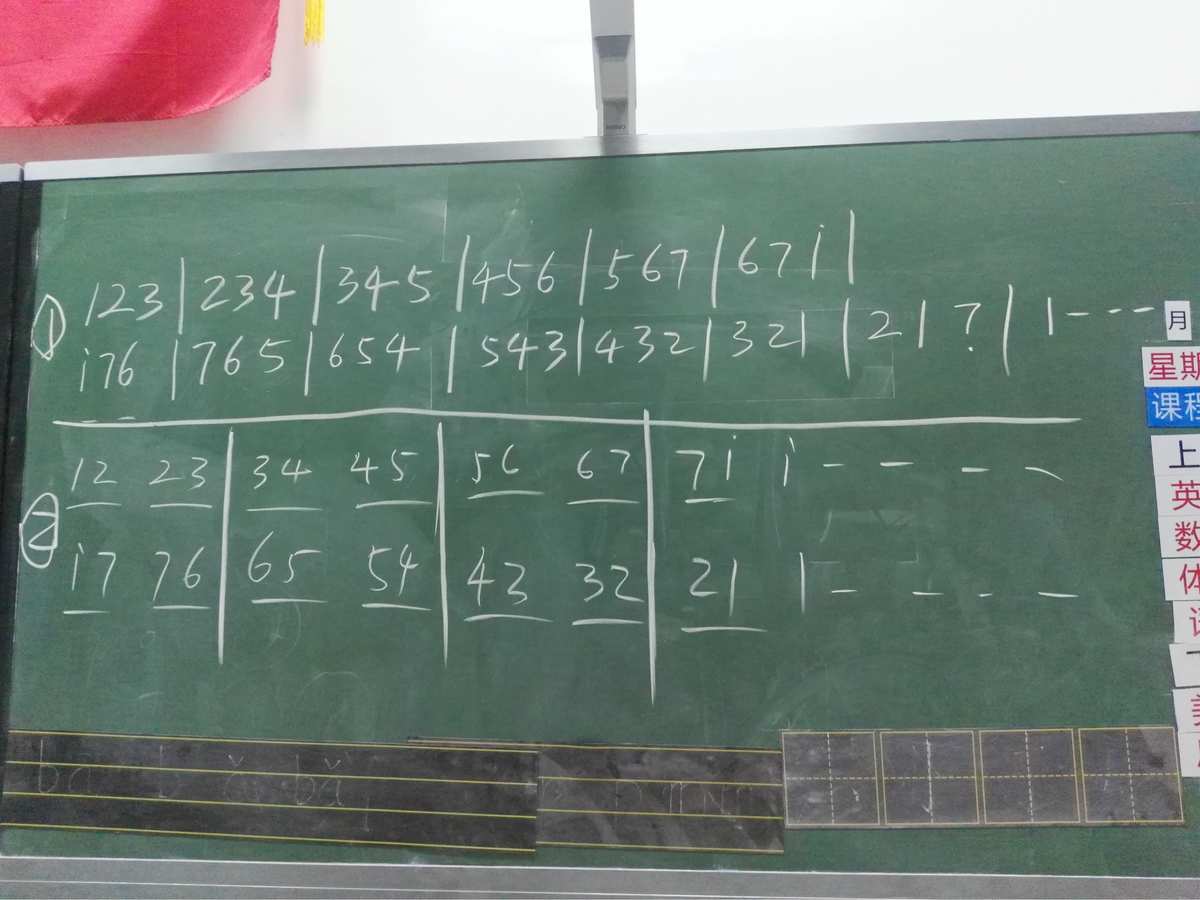 ① 123|234|345|456|567|67i|
i76|765|654|543|432|321|217̣|1---
② 12 23|34 45|56 67|7i i - - - -
i7 76|65 54|43 32|21 1 - - - -
月
星期
课程
上
英
数
体